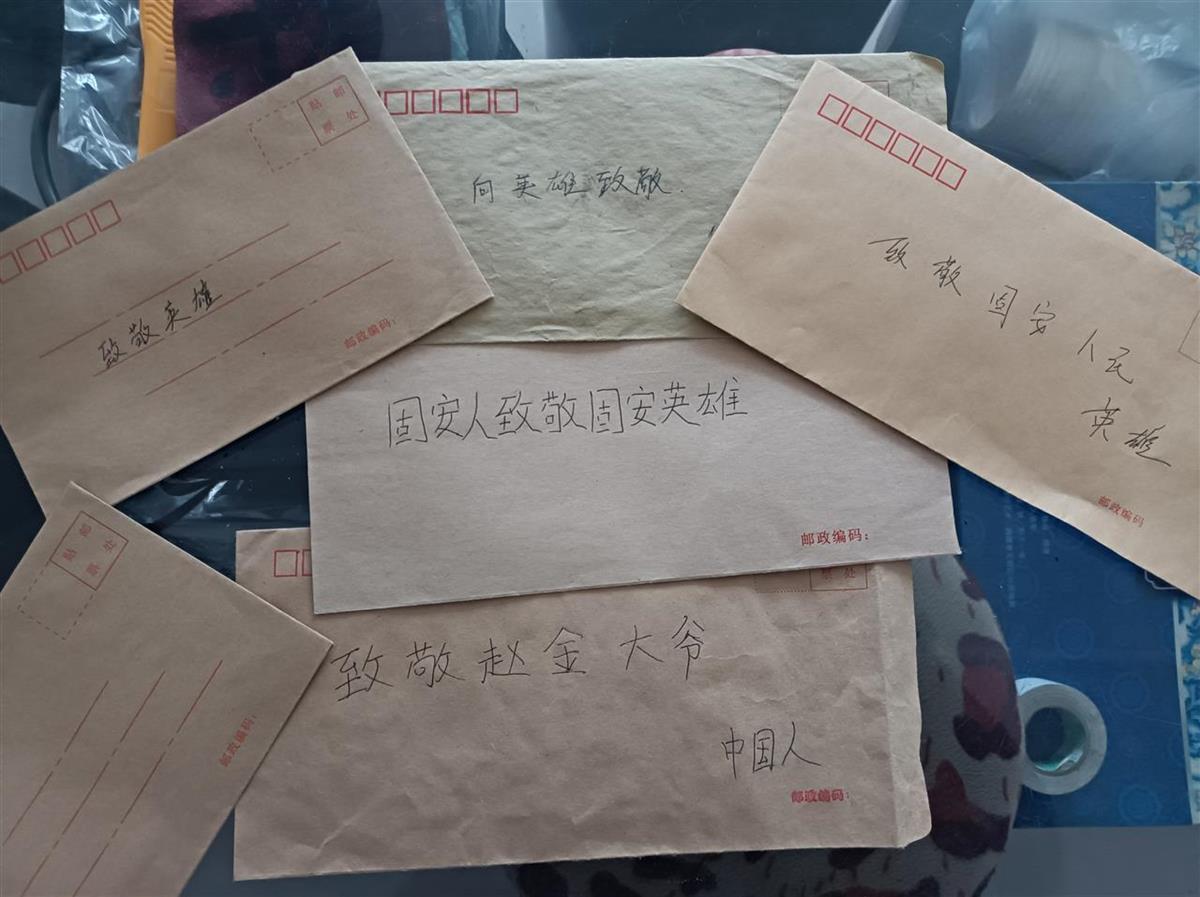 贴邮
票处
致敬英雄
邮政编码：
向英雄致敬.
致敬固安人民
英雄
邮政编码
固安人致敬固安英雄
邮政编码：
贴邮
票处
邮政编码：
票处
致敬赵金大爷
中国人
邮政编码：